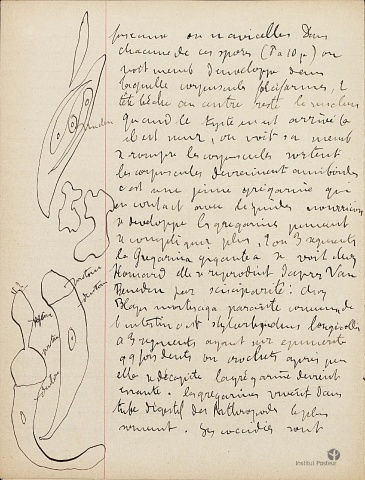 fuseaux ou navicelles Dans
chacune de ces spores (8 à 10 µ) on
voit memb d'enveloppe dans
laquelle corpuscules falciformes, 2
tête bêche au centre reste le nucleus
quand le kyste est arrivé
il est mur, on voit sa memb
se rompre les corpuscules sortent
les corpuscules deviennent amiboides
c'est une jeune grégarine qui
en contact avec liquides nourriciers
se developpe les gregarines peuvent
se compliquer plus, 2 ou 3 segments
la Gregarina gigantea se voit chez
Homard elle se reproduit Jacques Van
Beneden par scissiparité: chez
Blaps mortisaga parasite commun de
l'intestin c'est stylorhynchus longicollis
à 3 segments ayant sur epimerite
dents ou crochets après peu
elle se décapite la grégarine devient
errante. les gregarines vivent dans
tube digestif des Arthropodes le plus
souvent. Les coccidies sont
nucleus
Institut Pasteur